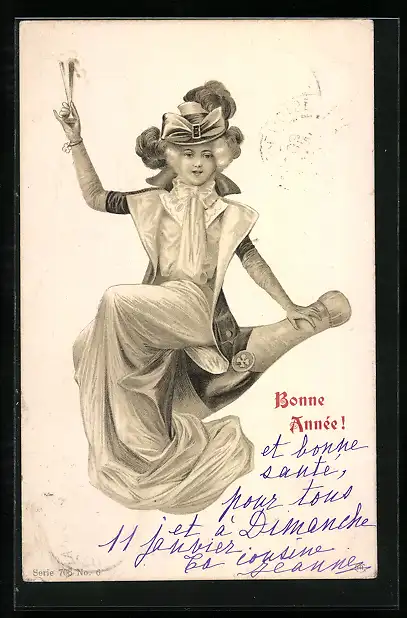 Bonne
Année!
et bonne
santé,
pour tous
et à Dimanche
11 janvier
ta cousine
Jeanne
Serie 706 No. 6